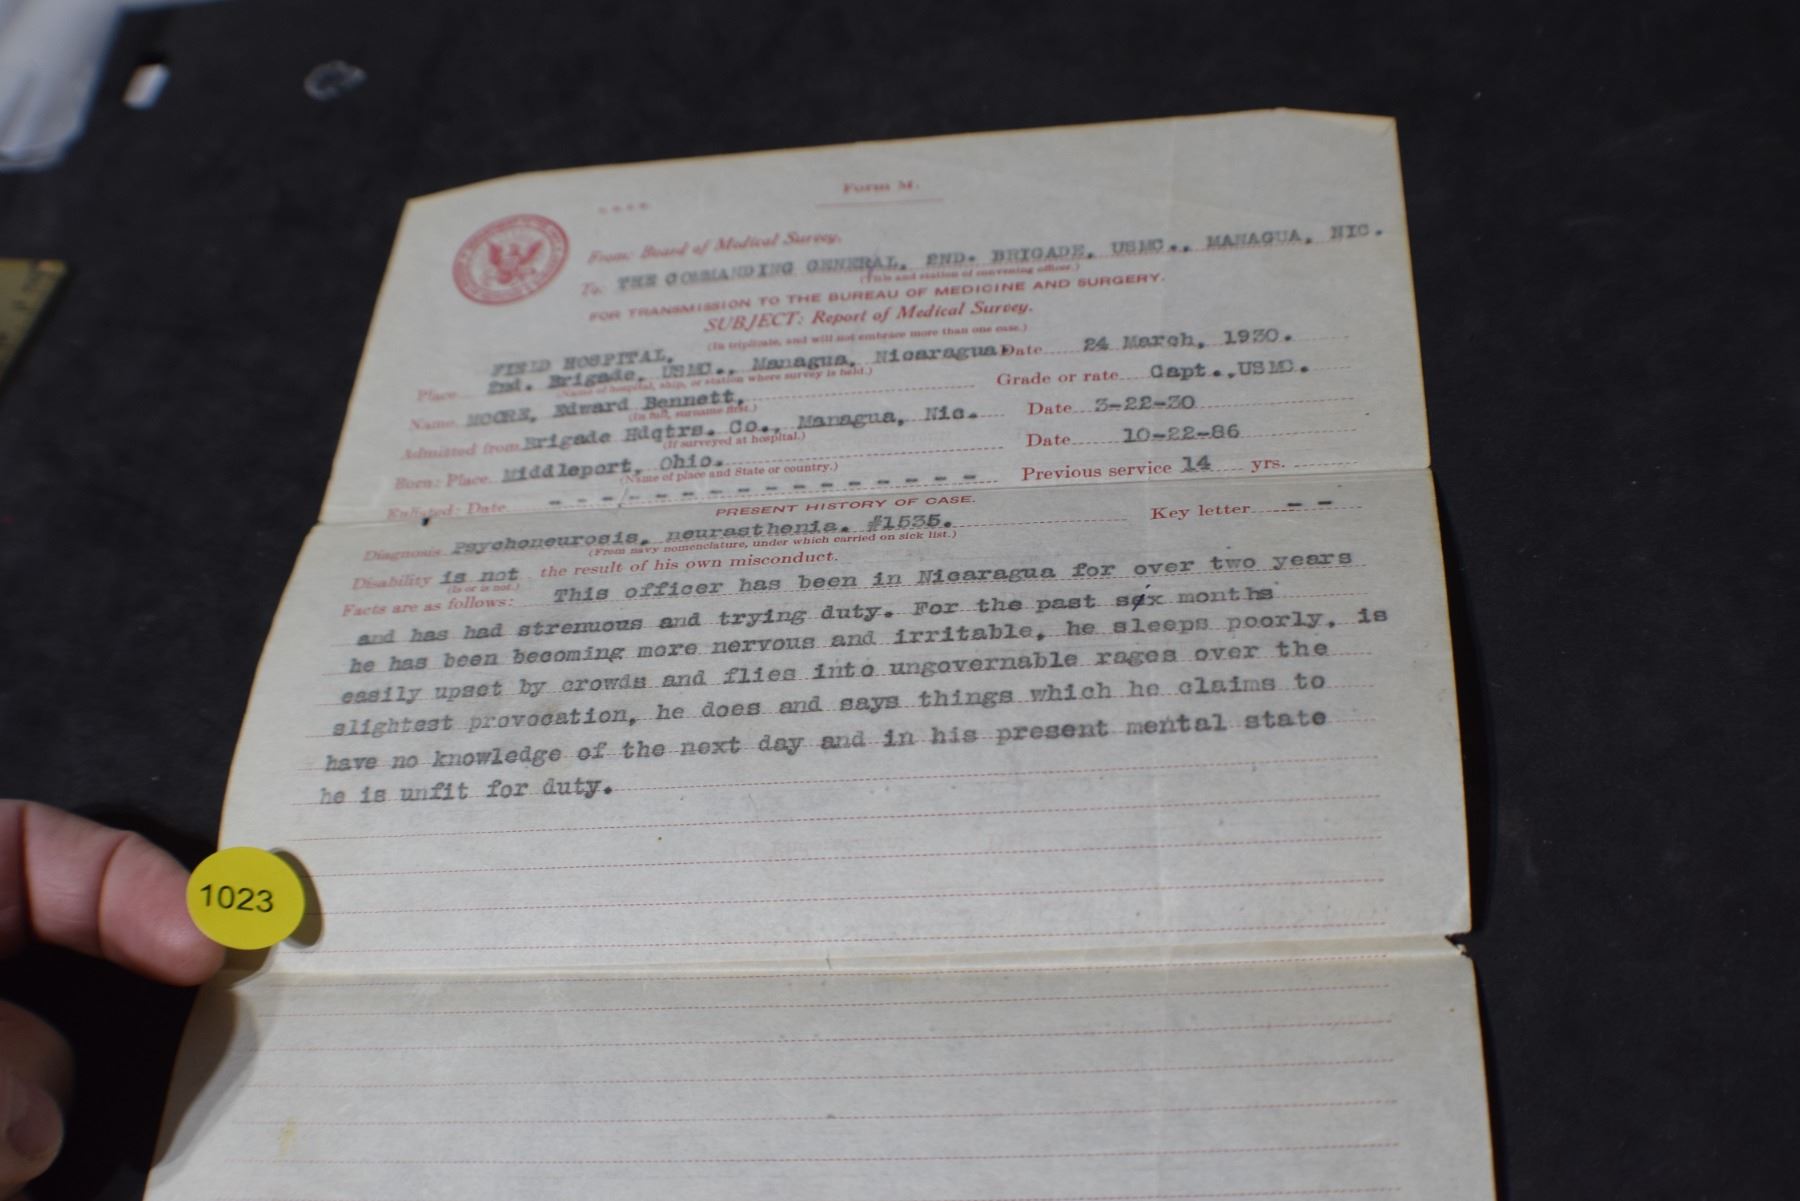 Form M.
From: Board of Medical Survey.
To: THE COMMANDING GENERAL, 2ND. BRIGADE, USMC., MANAGUA, NIC.
(Title and station of convening officer.)
FOR TRANSMISSION TO THE BUREAU OF MEDICINE AND SURGERY.
SUBJECT: Report of Medical Survey.
(In triplicate, and will not embrace more than one case.)
FIELD HOSPITAL,
Place 2nd. Brigade, USMC., Managua, Nicaragua Date 24 March, 1930.
(Name of hospital, ship, or station where survey is held.)
Name MOORE, Edward Bennett, Grade or rate Capt., USMC.
(In full, surname first.)
Admitted from Brigade Hdqtrs. Co., Managua, Nic. Date 3-22-30
(If surveyed at hospital.)
Born: Place Middleport, Ohio. Date 10-22-86
(Name of place and State or country.)
Enlisted: Date - - - / - - - - - - - - - - - - Previous service 14 yrs.
PRESENT HISTORY OF CASE.
Diagnosis Psychoneurosis, neurasthenia. #1535. Key letter - -
(From navy nomenclature, under which carried on sick list.)
Disability is not the result of his own misconduct.
(Is or is not.)
Facts are as follows: This officer has been in Nicaragua for over two years
and has had strenuous and trying duty. For the past six months
he has been becoming more nervous and irritable, he sleeps poorly, is
easily upset by crowds and flies into ungovernable rages over the
slightest provocation, he does and says things which he claims to
have no knowledge of the next day and in his present mental state
he is unfit for duty.
1023